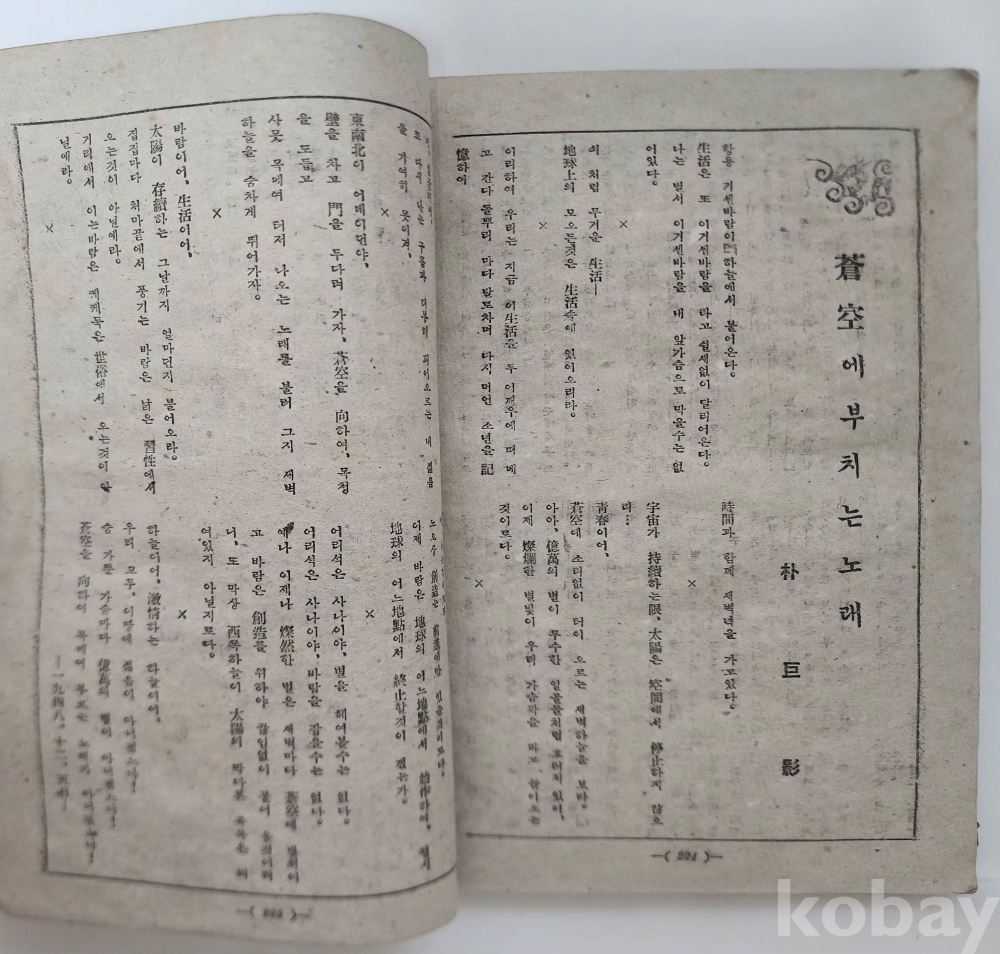 蒼空에부치는노래
朴巨影
함용 거센바람이 하늘에서 불어온다.
生活은 또 이거센바람을 타고 쉴새없이 달리어온다.
나는 벌서 이거센바람을 내 앞가슴으로 막을수는 없
어있다.
×
쇠처럼 무거운 生活—
地球上의 모오든것은 生活속에 있어으리라.
×
이리하여 우리는 지금 이生活을 두 어깨우에 떠메
고 간다 돌뿌리 마다 발도차며 다지며언 소년을 記
憶하여
時間과 함께 새벽녘을 가고있다.
×
宇宙가 持續하는限, 太陽은 空間에서 停止하지 않으
리…
青春이어,
蒼空에 소리없이 터이 오르는 새벽하늘을 보라.
아아, 億萬의 별이 무수한 얼골들처럼 흐터저 있어,
이제 燦爛한 별빛이 우리 가슴팍을 파고 들어오는
것이르다.
×
—( 221 )—
을 가여히 못이겨,
×
東南北이 어베이던야,
壁을 차고 門을 두다며 가자, 蒼空을 向하여, 목청
을 도듭고
사못 목메여 터저 나오는 노래를 불러 그지 새벽
하늘을 숨차게 뛰어가자.
×
바람이어, 生活이어,
太陽이 存續하는 그날까지 얼마던지 불어오라.
집집마다 처마끝에서 풍기는 바람은 낡은 習性에서
오는것이 아닐예라.
거리에서 이는바람은 께케묵은 世俗에서 오는것이 아
닐예라.
×
이제 바람은 地球의 어느地點에서 始作하여, 몇시
地球의 어느地點에서 終止할것이 겠는가.
×
어리석은 사나이야, 별을 헤여볼수는 없다.
어리석은 사나이야, 바람을 잡을수는 없다.
예나 이제나 燦然한 별은 새벽마다 蒼空에
고 바람은 創造를 위하야 끊임없이 불어 올것이려
니, 또 막상 西쪽하늘이 太陽의 막다른 쪽은
여있지 아닐지르다.
×
하늘이어, 激情하는 하늘이어,
우리 모두, 이땅에 젊음이 아니겠느냐!
숨 가쁜 가슴마다 億萬의 별이 아니겠느냐!
蒼空을 向하여 목메여 부르는 노래가 아니겠느냐!
—一九四八. 十二. 五夜—
—( 222 )—
kobay